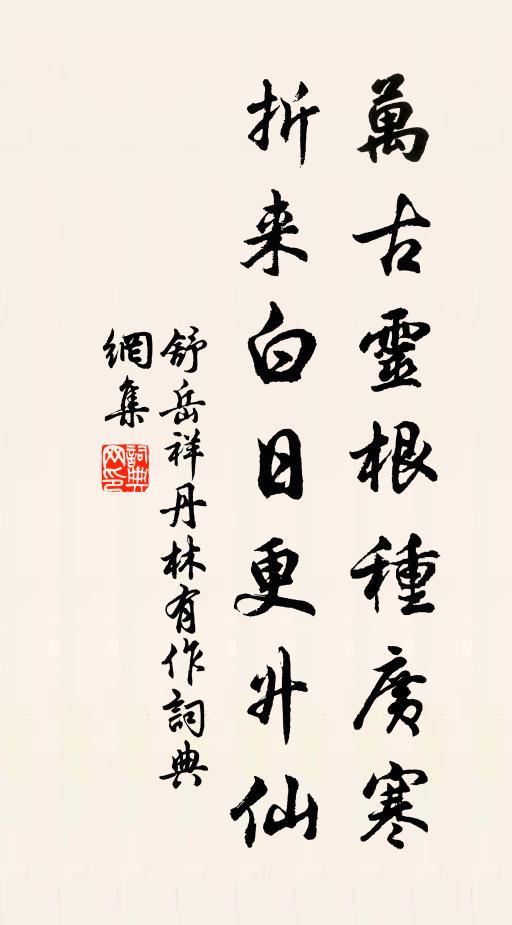 萬古靈根種廣寒
折来白日更升仙
舒岳祥丹林有作詞典
網集
詞典网印